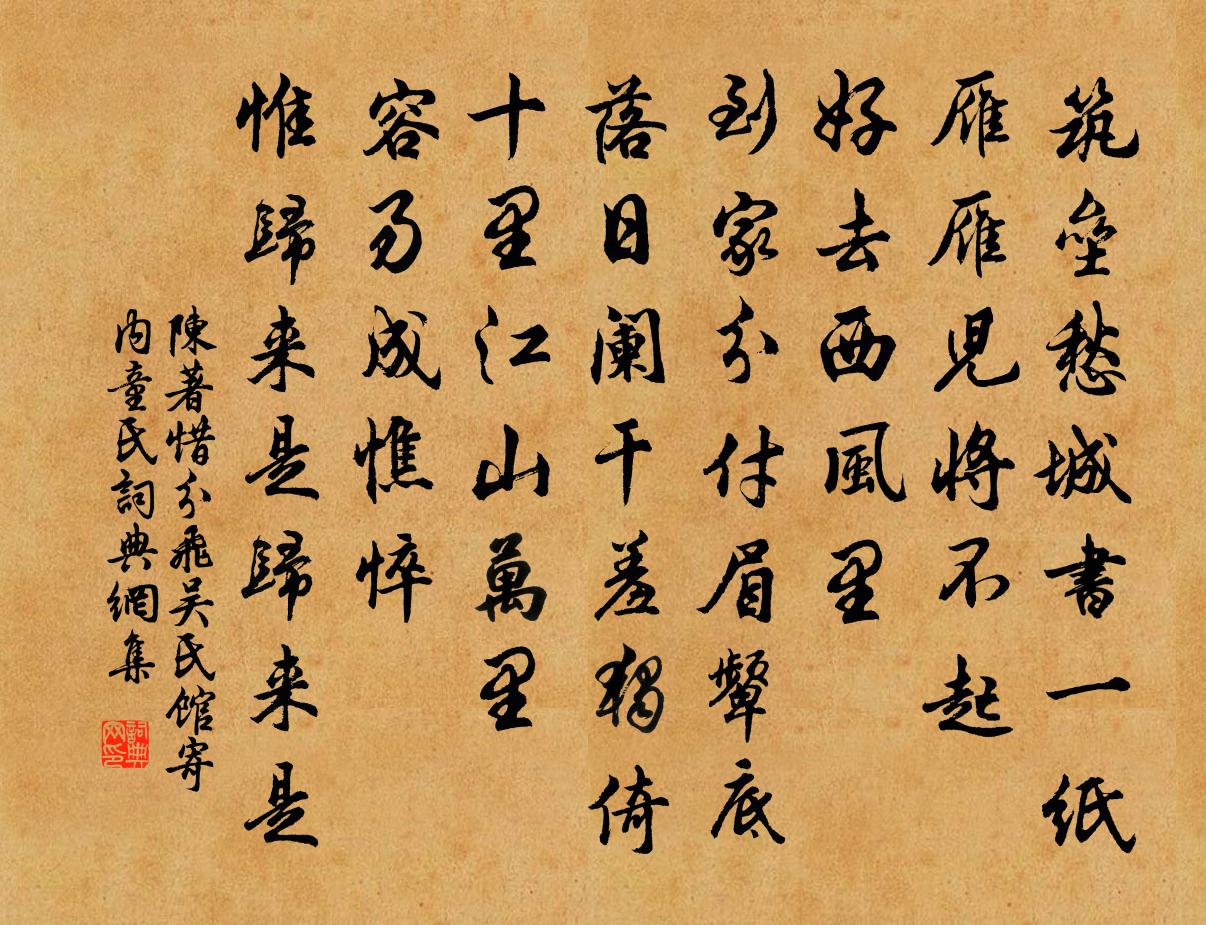 筑壘愁城書一紙
雁雁見將不起
好去西風里
到家分付眉顰底
落日阑干羞独倚
十里江山萬里
容易成憔悴
惟歸来是歸来是
陳著惜分飛吴氏館寄
内童氏詞典網集
詞典網印